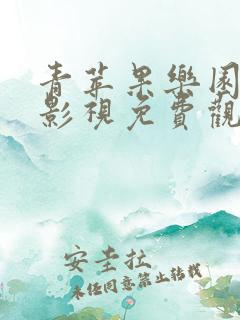 青苹果樂園
影視免費觀
安圭拉
未经同意禁止转载